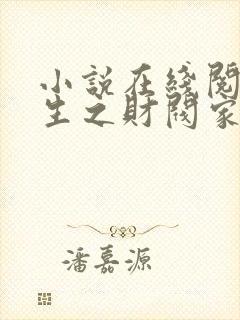 小説在綫閱
生之財閥家
潘嘉源